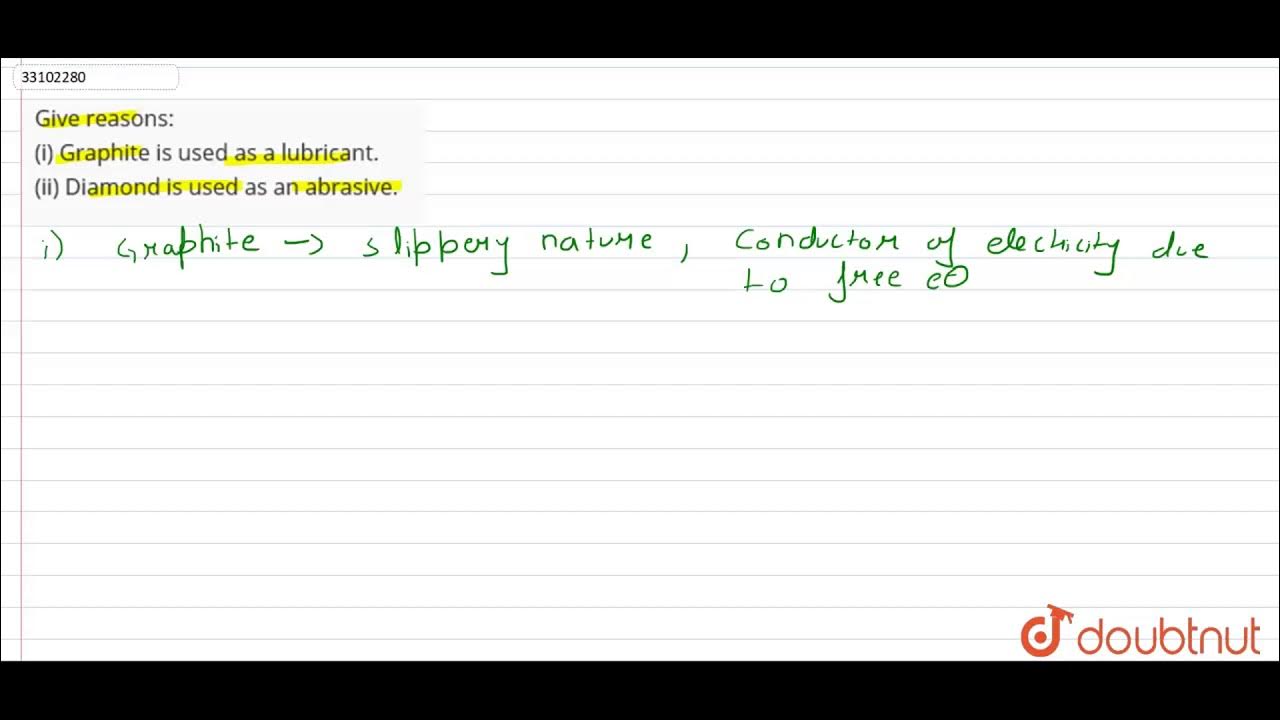 33102280
Give reasons:
(i) Graphite is used as a lubricant.
(ii) Diamond is used as an abrasive.
i) Graphite → slippery nature, conductor of electricity due
to free e⊖
doubtnut